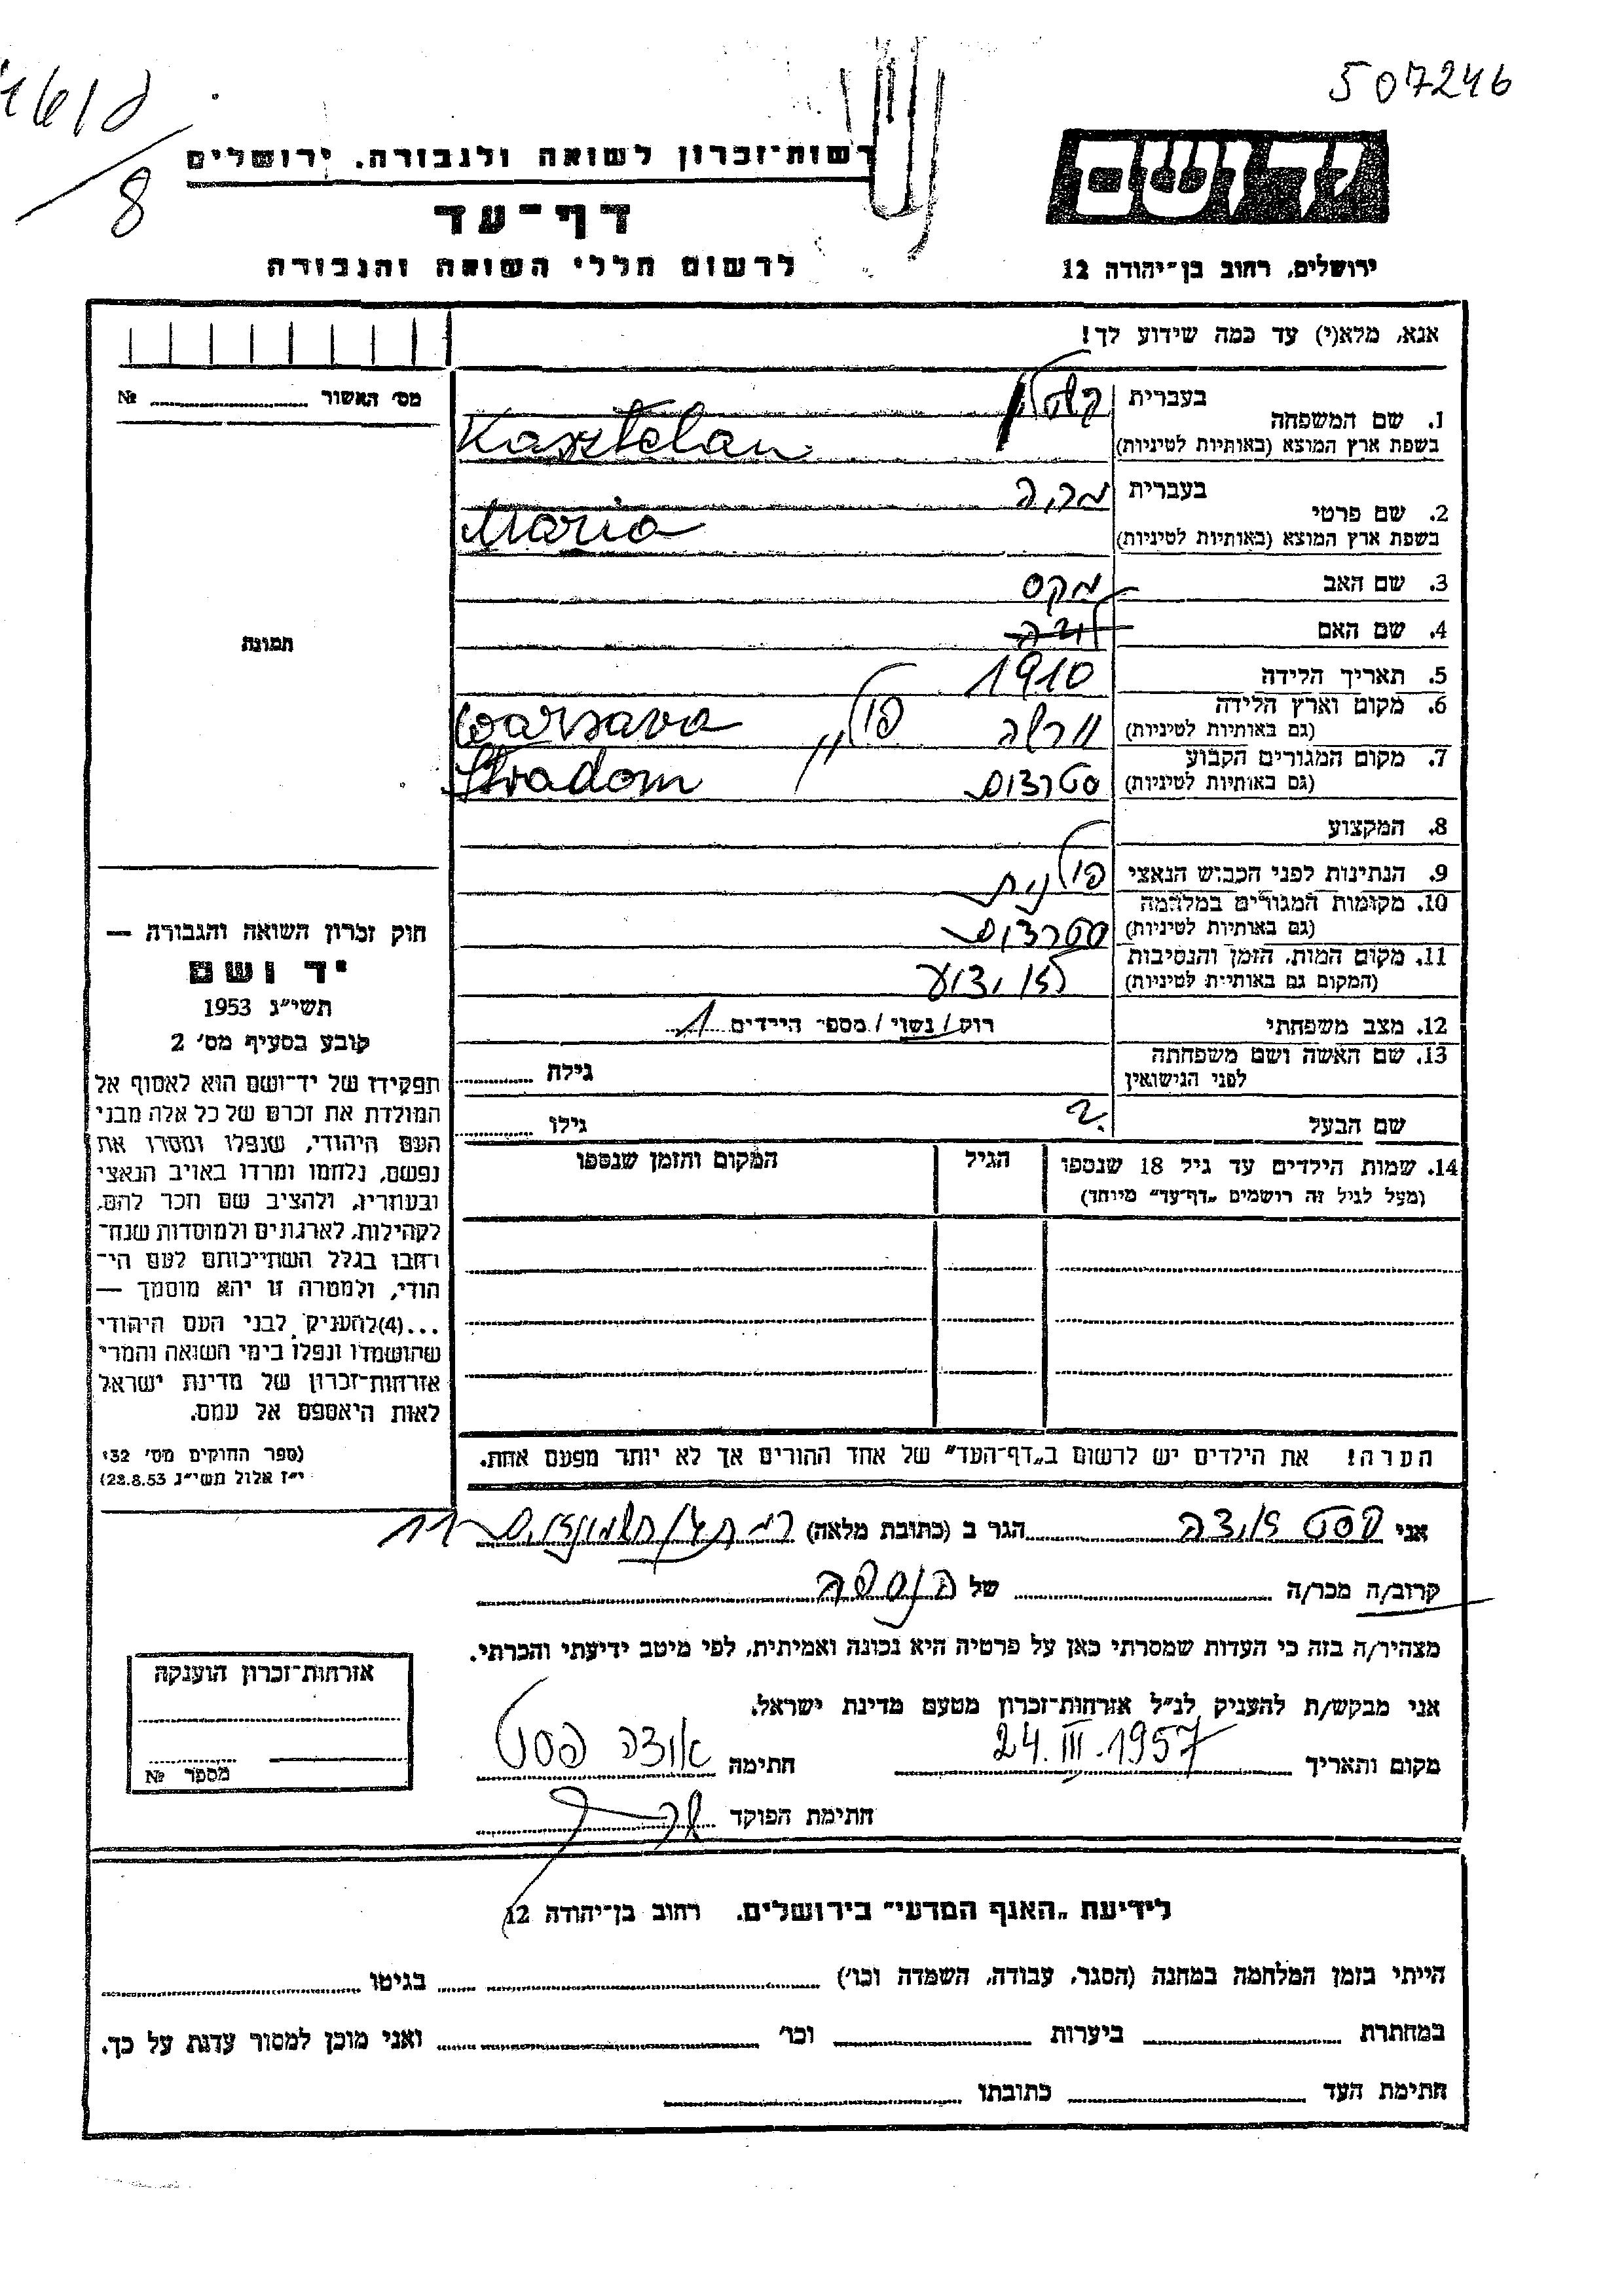 507246
8
רשות־זכרון לשואה ולגבורה. ירושלים
דף־עד
לרשום חללי השואה והגבורה
יד ושם
ירושלים, רחוב בן־יהודה 12
אנא, מלא(י) עד כמה שידוע לך!
מס׳ האשור ........ №
1. שם המשפחה בעברית
בשפת ארץ המוצא (באותיות לטיניות) Kasztelan
2. שם פרטי בעברית מריה
בשפת ארץ המוצא (באותיות לטיניות) Maria
3. שם האב מקס
4. שם האם
5. תאריך הלידה 1910
6. מקום וארץ הלידה ורשה פולין Warsava
(גם באותיות לטיניות)
7. מקום המגורים הקבוע סטרדום " Stradom
(גם באותיות לטיניות)
8. המקצוע
9. הנתינות לפני הכבוש הנאצי פולנית
10. מקומות המגורים במלחמה סטרדום
(גם באותיות לטיניות)
11. מקום המות, הזמן והנסיבות לא ידוע
(המקום גם באותיות לטיניות)
12. מצב משפחתי רווק/נשוי/מספר הילדים 1
13. שם האשה ושם משפחתה
לפני הנישואין גילה ........
שם הבעל ? גילו ........
14. שמות הילדים עד גיל 18 שנספו הגיל המקום והזמן שנספו
(מעל לגיל זה רושמים „דף־עד״ מיוחד)
הערה! את הילדים יש לרשום ב„דף־העד״ של אחד ההורים אך לא יותר מפעם אחת.
תמונה
חוק זכרון השואה והגבורה —
יד ושם
תשי״ג 1953
קובע בסעיף מס׳ 2
תפקידו של יד־ושם הוא לאסוף אל
המולדת את זכרם של כל אלה מבני
העם היהודי, שנפלו ומסרו את
נפשם, נלחמו ומרדו באויב הנאצי
ובעוזריו, ולהציב שם וזכר להם,
לקהילות, לארגונים ולמוסדות שנח־
רחבו בגלל השתייכותם לעם הי־
הודי, ולמטרה זו יהא מוסמך —
...(4) להעניק לבני העם היהודי
שהושמדו ונפלו בימי השואה והמרי
אזרחות־זכרון של מדינת ישראל
לאות היאספם אל עמם.
(ספר החוקים מס׳ 132
י״ז אלול תשי״ג 28.8.53)
אני הגר ב (כתובת מלאה) 11
קרוב/ה מכר/ה ........ של
מצהיר/ה בזה כי העדות שמסרתי כאן על פרטיה היא נכונה ואמיתית, לפי מיטב ידיעתי והכרתי.
אני מבקש/ת להעניק לנ״ל אזרחות־זכרון מטעם מדינת ישראל.
מקום ותאריך 24.III.1957 חתימה
חתימת הפוקד
אזרחות־זכרון הוענקה
מספר №
לידיעת „האגף המדעי״ בירושלים. רחוב בן־יהודה 12
הייתי בזמן המלחמה במחנה (הסגר, עבודה, השמדה וכו׳) ........ בגיטו ........
במחתרת ........ ביערות ........ וכו׳ ........ ואני מוכן למסור עדות על כך.
חתימת העד ........ כתובתו ........